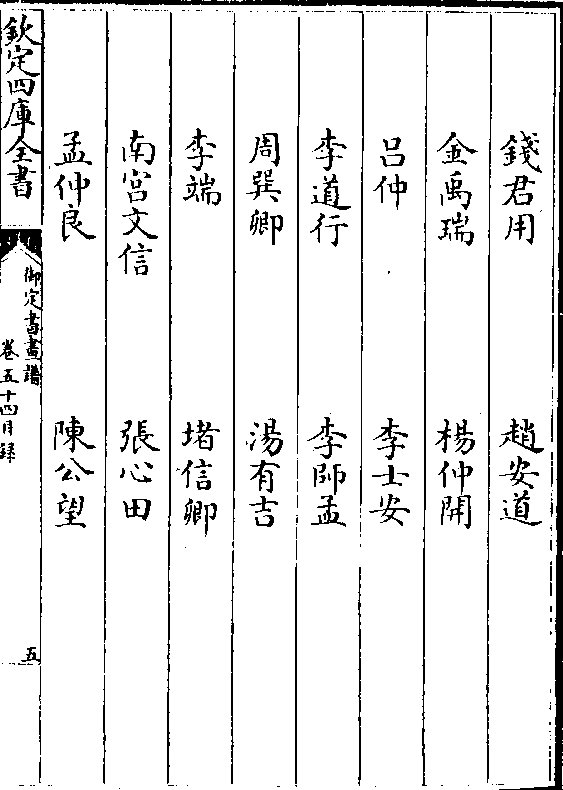 錢君用　趙安道
金禹瑞　楊仲開
呂仲　李士安
李道行　李師孟
周巽卿　湯有吉
李端　堵信卿
南宮文信　張心田
孟仲良　陳公望
欽定四庫全書
御定書畫譜
卷五十四目録
五